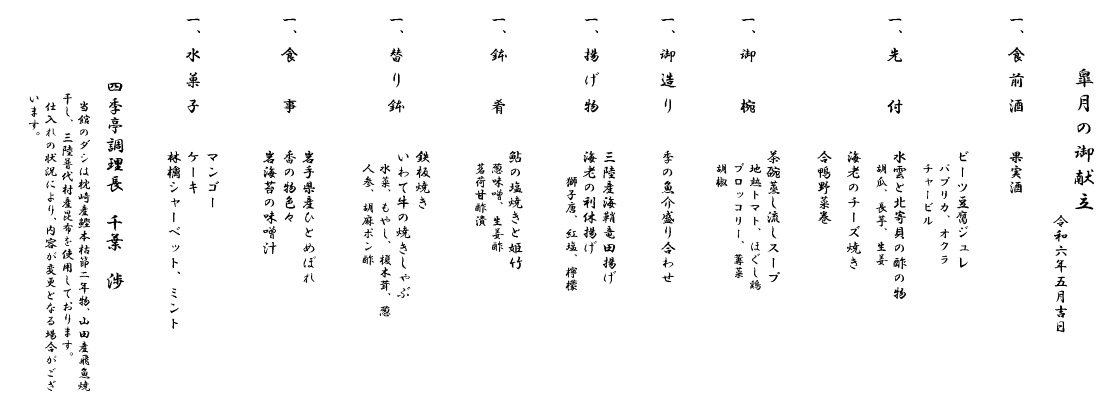 皐月の御献立
令和六年五月吉日
一、食前酒
果実酒
一、先付
ビーツ豆腐ジュレ
パプリカ、オクラ
チャービル
水雲と北寄貝の酢の物
胡瓜、長芋、生姜
海老のチーズ焼き
合鴨野菜巻
一、御椀
茶碗蒸し流しスープ
地熱トマト、ほぐし鶏
ブロッコリー、蓴菜
胡椒
一、御造り
季の魚介盛り合わせ
一、揚げ物
三陸産海鞘竜田揚げ
海老の利休揚げ
獅子唐、紅塩、檸檬
一、鉢肴
鮎の塩焼きと姫竹
葱味噌、生姜酢
茗荷甘酢漬
一、替り鉢
鉄板焼き
いわて牛の焼きしゃぶ
水菜、もやし、榎木茸、葱
人参、胡麻ポン酢
一、食事
岩手県産ひとめぼれ
香の物色々
岩海苔の味噌汁
一、水菓子
マンゴー
ケーキ
林檎シャーベット、ミント
四季亭調理長　千葉　渉
当館のダシは枕崎産鰹本枯節二年物、山田産飛魚焼
干し、三陸普代村産昆布を使用しております。
仕入れの状況により、内容が変更となる場合がござ
います。